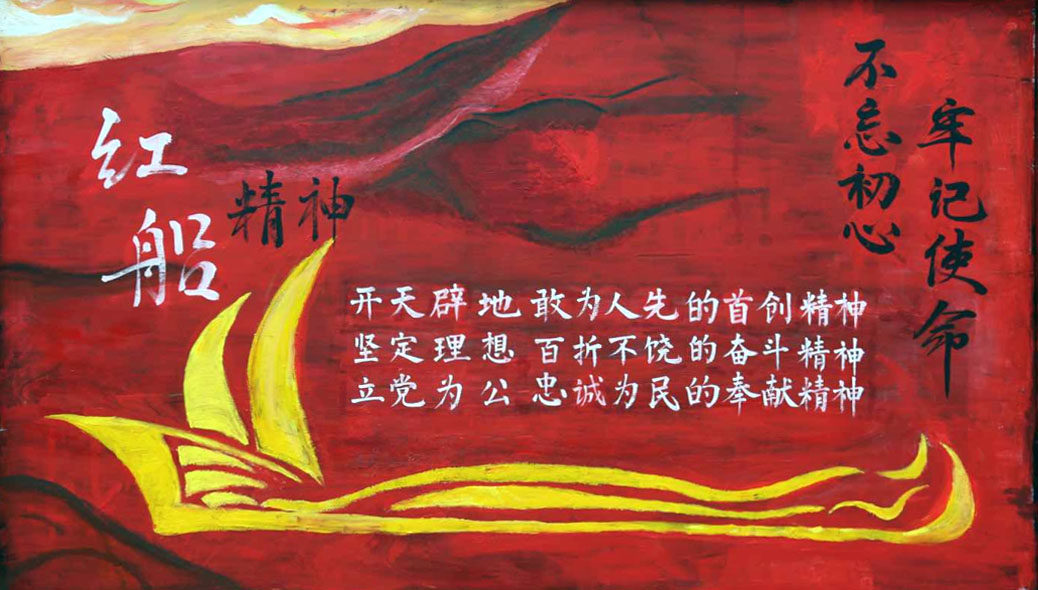 红船
精神
开天辟地 敢为人先的首创精神
坚定理想 百折不饶的奋斗精神
立党为公 忠诚为民的奉献精神
不忘初心
牢记使命